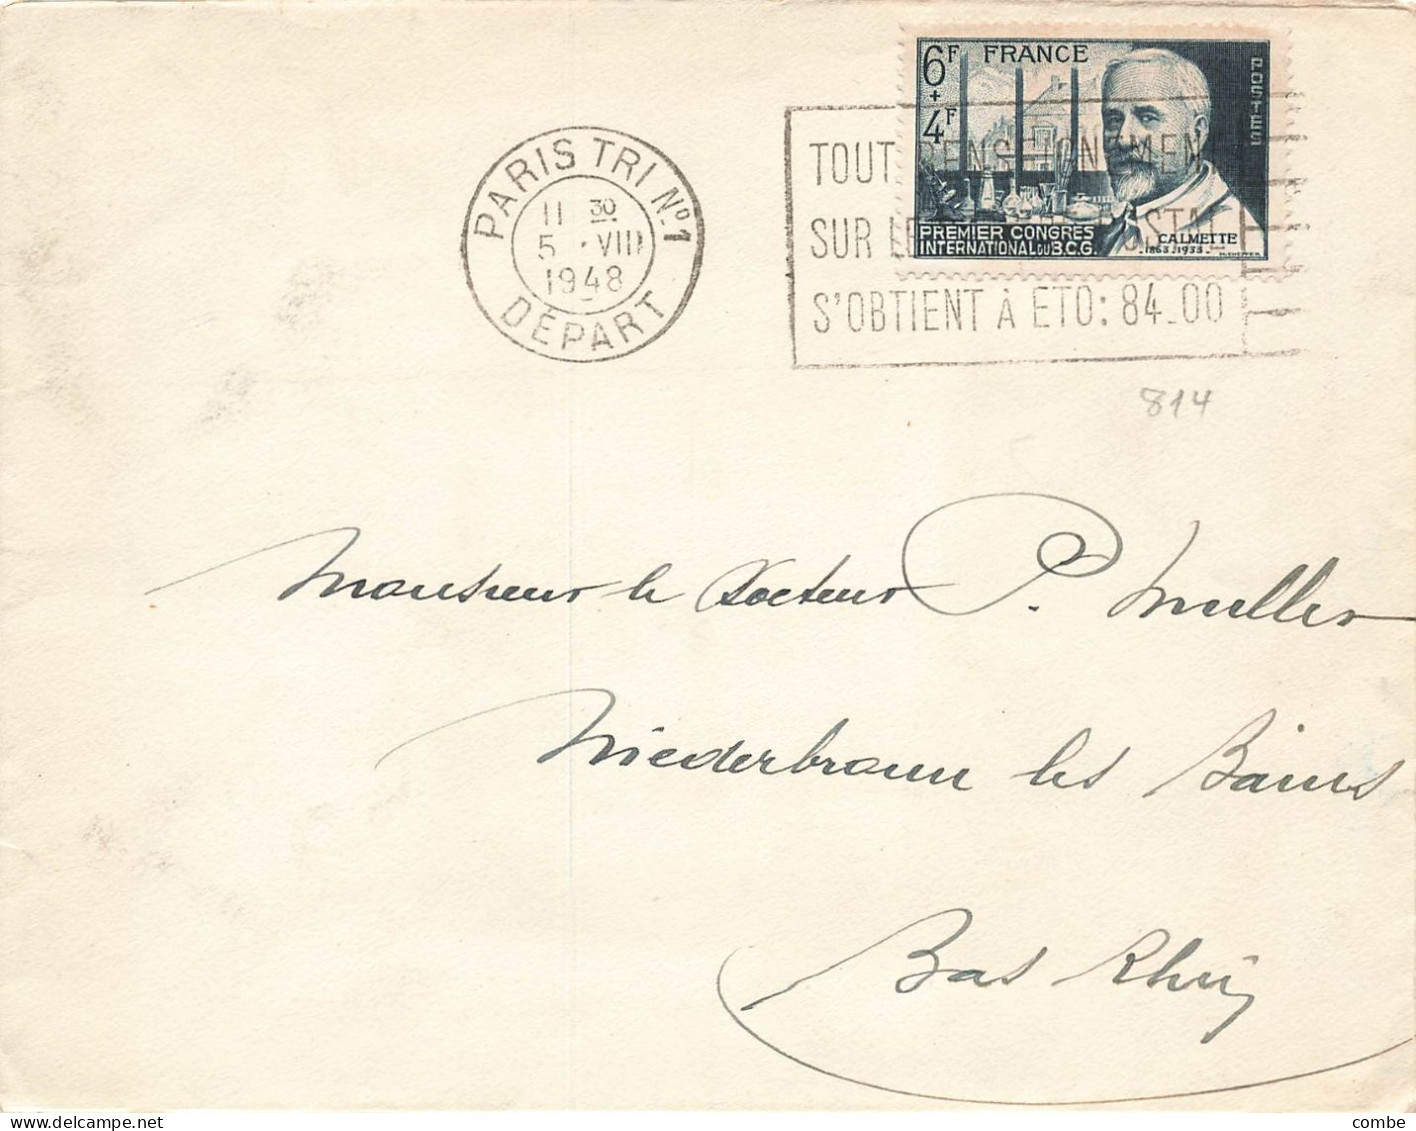 6F FRANCE
+
4F
POSTES
PREMIER CONGRES
INTERNATIONAL DU B.C.G.
CALMETTE
1863-1933
PARIS TRI Nº1
11 30
5 VIII
1948
DÉPART
TOUT RENSEIGNEMENT
SUR LE POSTAL
S'OBTIENT À ETO: 84_00
814
Monsieur le Docteur P. Muller
Niederbronn les Bains
Bas Rhin
combe